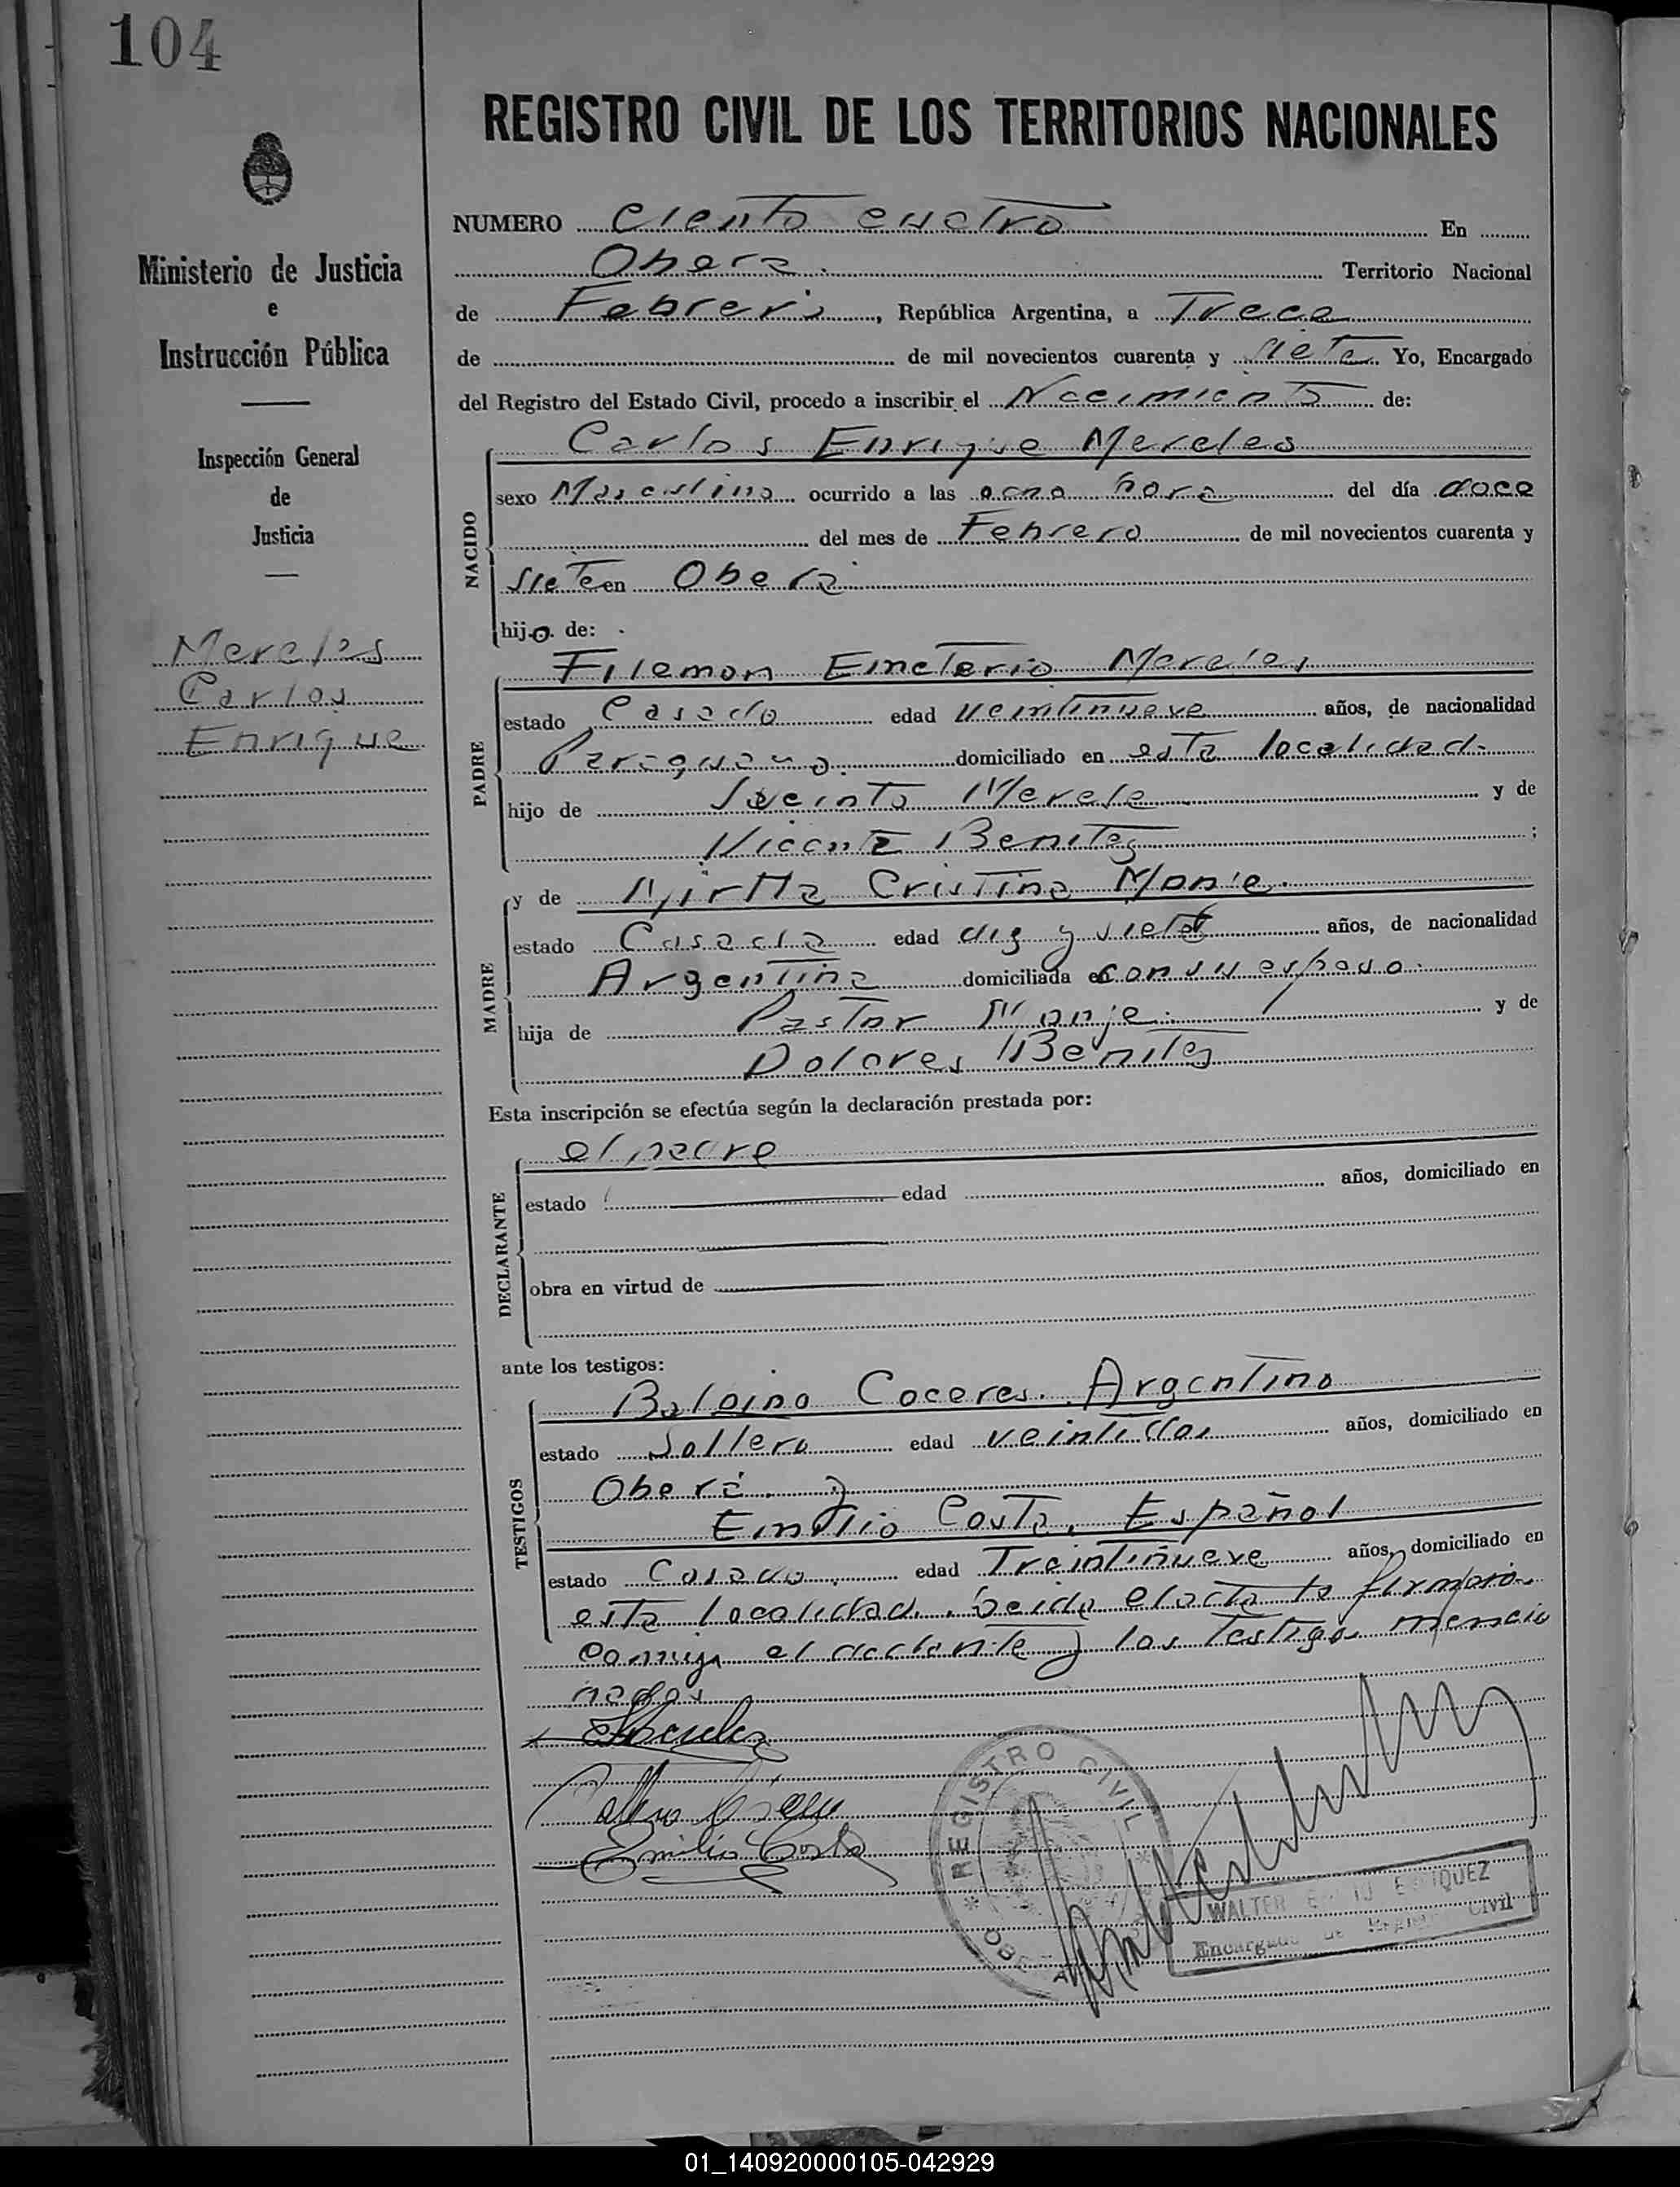 104
REGISTRO CIVIL DE LOS TERRITORIOS NACIONALES
Ministerio de Justicia
e
Instrucción Pública
Inspección General
de
Justicia
Mereles
Carlos
Enrique
NUMERO Ciento cuatro En
Obera. Territorio Nacional
de Febrero, República Argentina, a Trece
de de mil novecientos cuarenta y siete Yo, Encargado
del Registro del Estado Civil, procedo a inscribir el Nacimiento de:
NACIDO
Carlos Enrique Mereles
sexo Masculino ocurrido a las ocho hora del día doce
del mes de Febrero de mil novecientos cuarenta y
siete en Obera
hijo de:
PADRE
Filemon Emeterio Mereles
estado Casado edad veintinueve años, de nacionalidad
Paraguayo. domiciliado en esta localidad.
hijo de Jacinto Merele y de
Vicenta Benitez ;
MADRE
y de Mirtta Cristina Monje.
estado Casada edad diez y siete años, de nacionalidad
Argentina domiciliada en con su esposo.
hija de Pastor Monje. y de
Dolores Benitez
Esta inscripción se efectúa según la declaración prestada por:
DECLARANTE
el padre
estado edad años, domiciliado en
obra en virtud de
ante los testigos:
TESTIGOS
Coceres. Argentino
estado Soltero edad veintidos años, domiciliado en
Oberá. y
Emilio Costa, Español
estado Casado, edad Treintinueve años, domiciliado en
esta localidad. Leida el acta la firmaron
conmigo el declarante y los Testigos mencio
nados
Emilio Costa
REGISTRO CIVIL
WALTER ENRIQUEZ
Encargado de Registro Civil
01_140920000105-042929